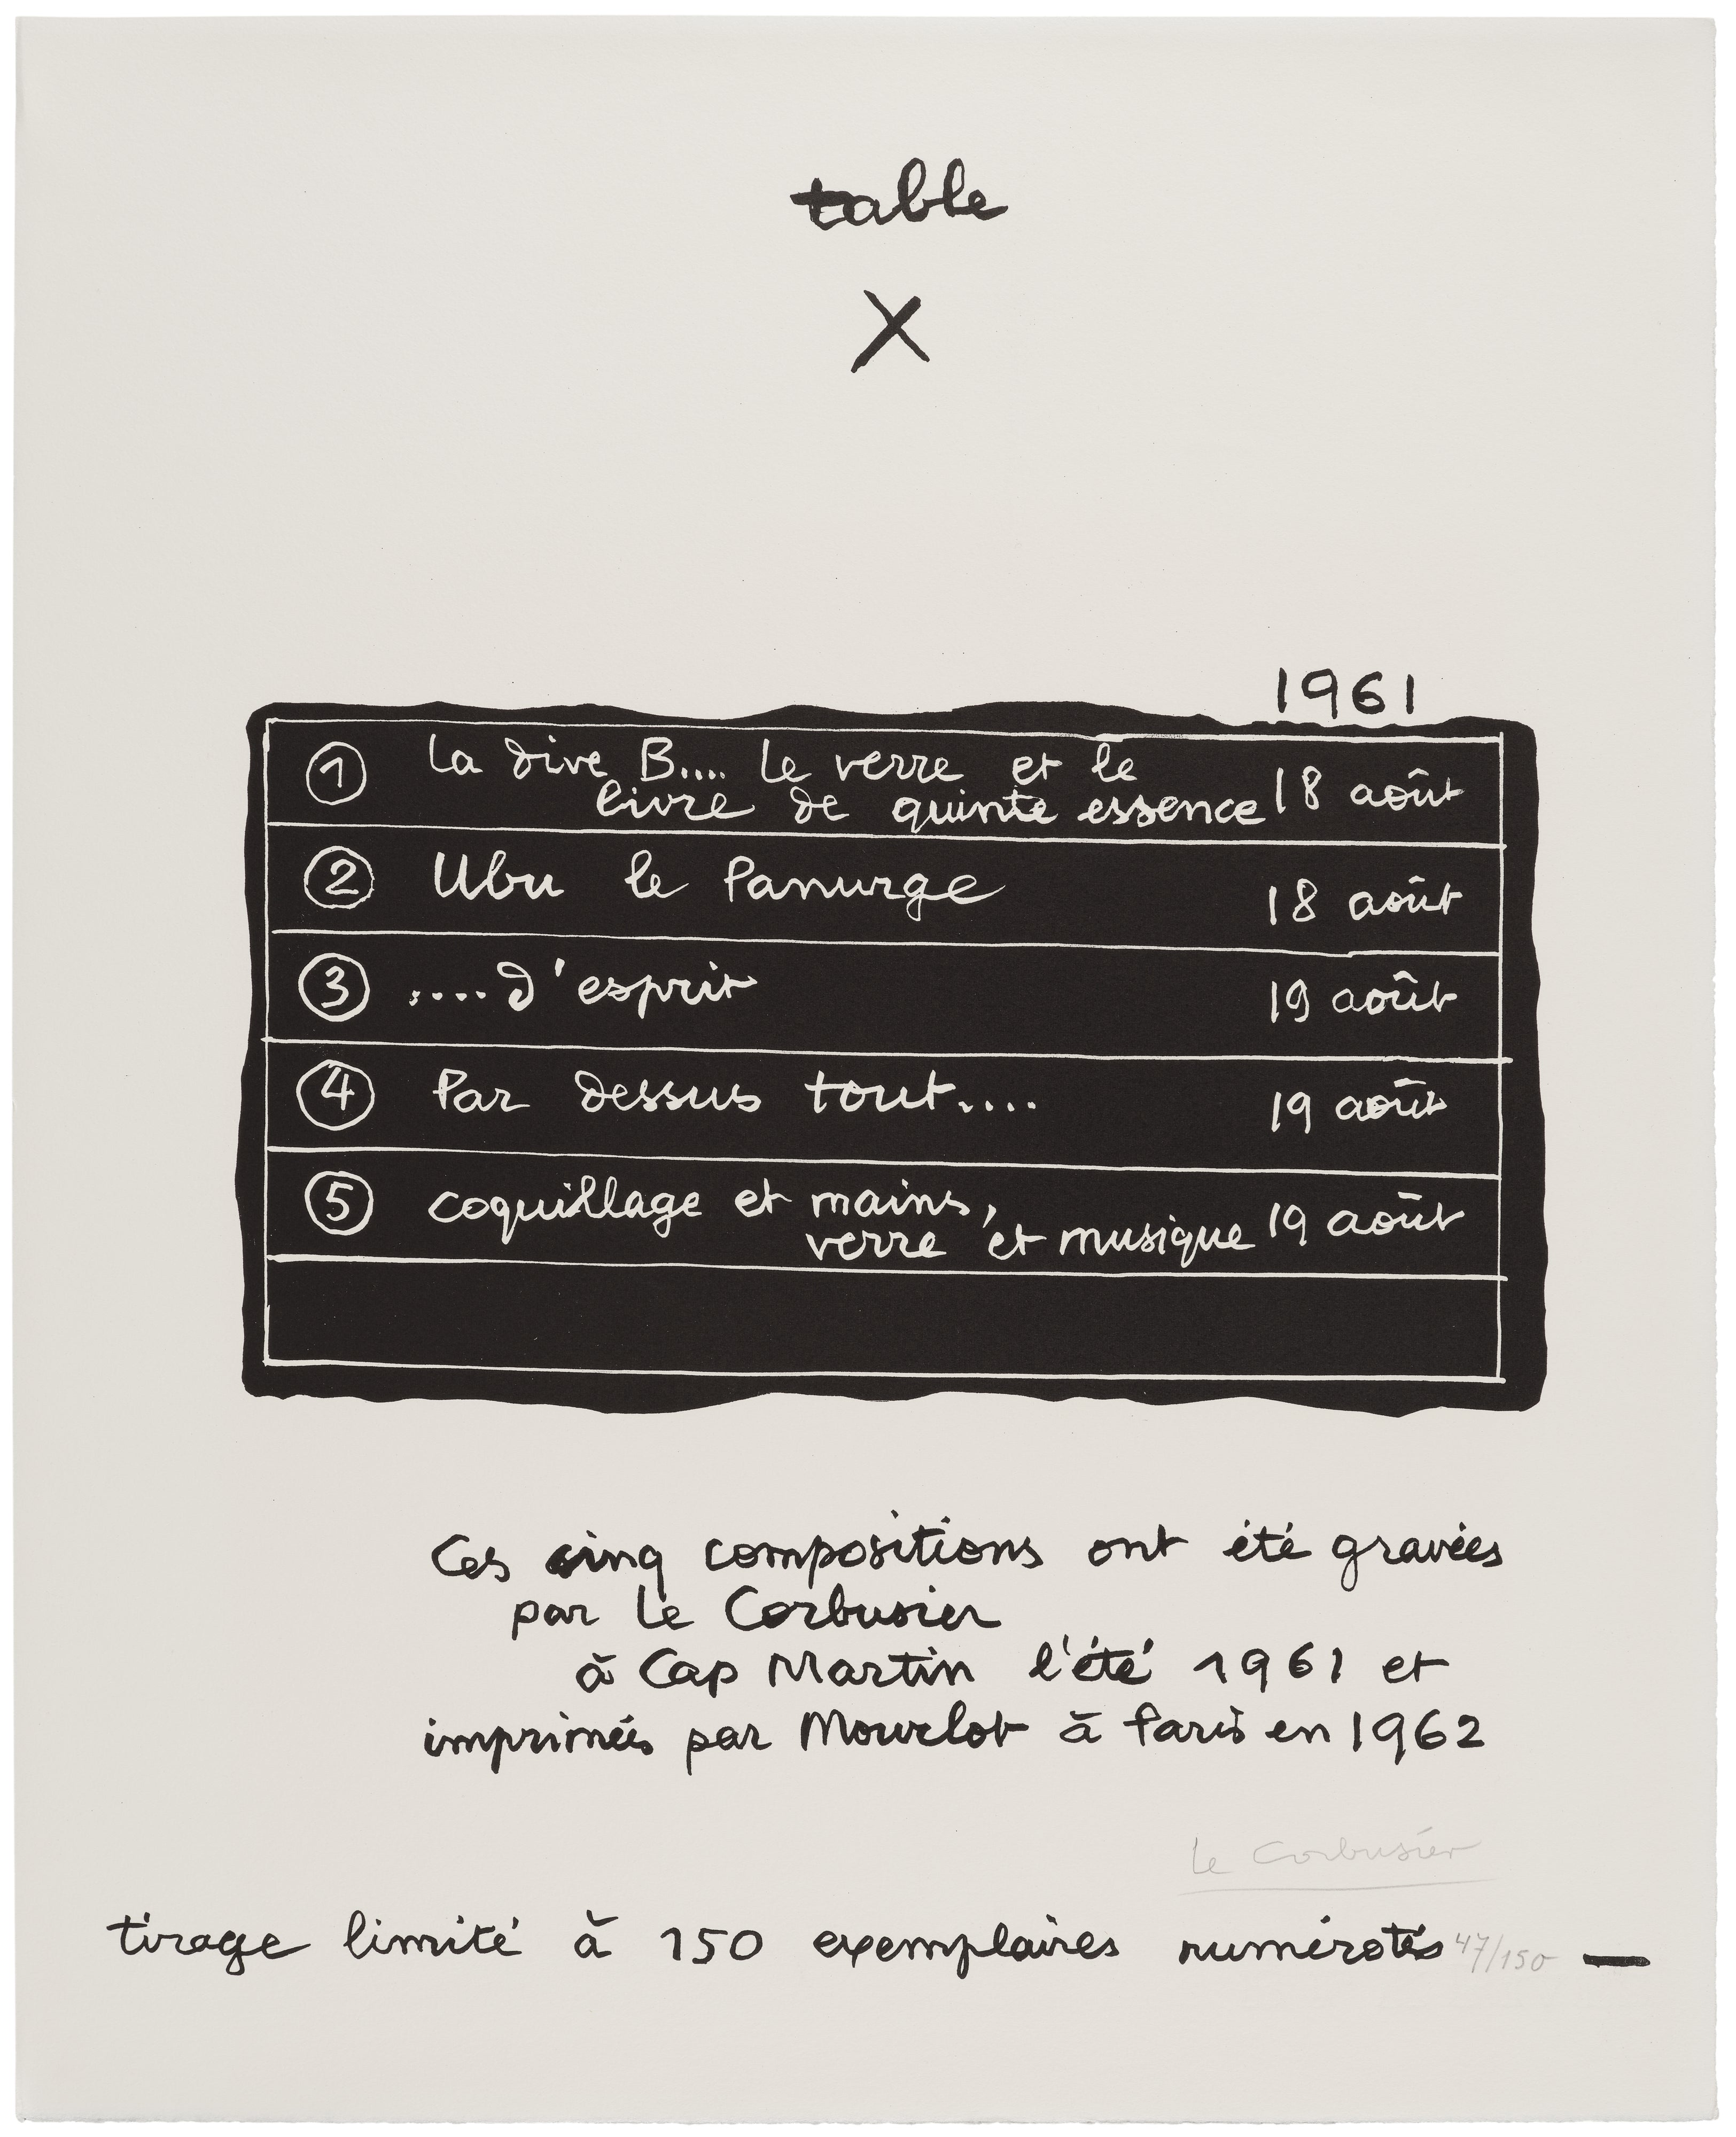 table
X
1961
1 la dive B.... le verre et le
livre de quinte essence 18 août
2 Ubu le Panurge 18 août
3 .... d'esprit 19 août
4 Par dessus tout.... 19 août
5 coquillage et mains,
verre et musique 19 août
Ces cinq compositions ont été gravées
par Le Corbusier
à Cap Martin l'été 1961 et
imprimées par Mourlot à Paris en 1962
Le Corbusier
tirage limité à 150 exemplaires numérotés 47/150 —